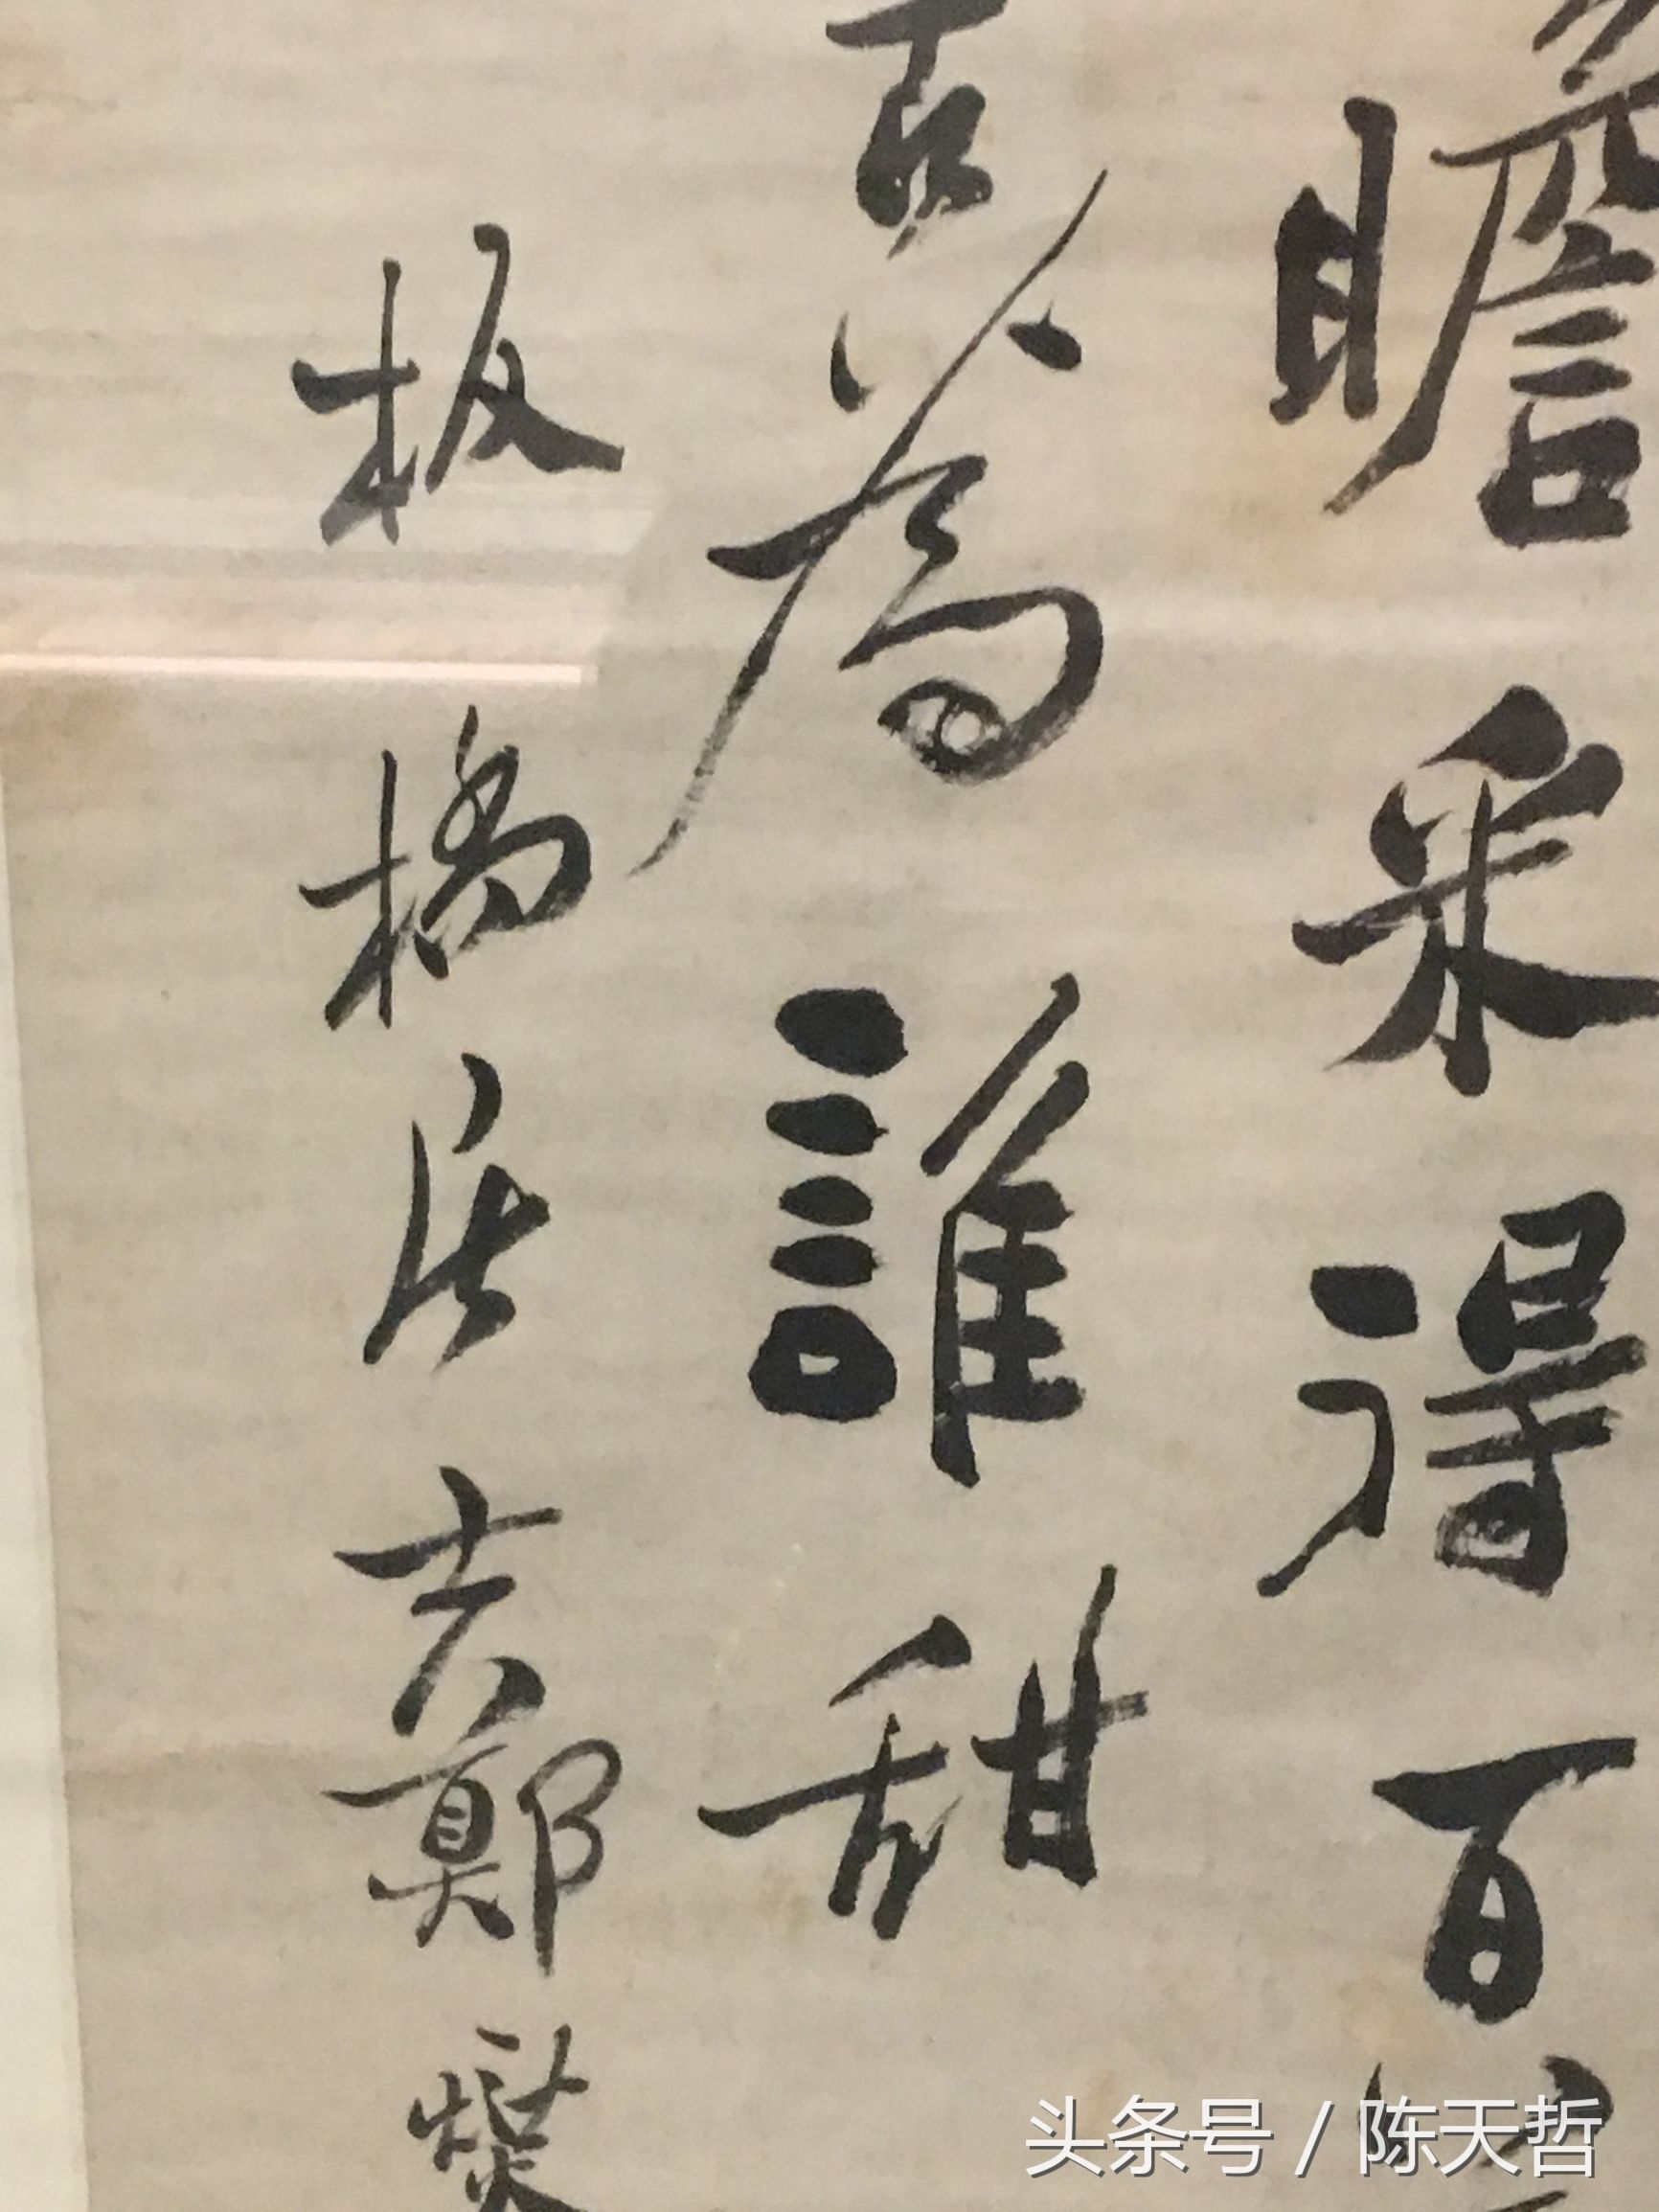 瞻采得百
苦為誰甜
板橋居士鄭燮
头条号 / 陈天哲